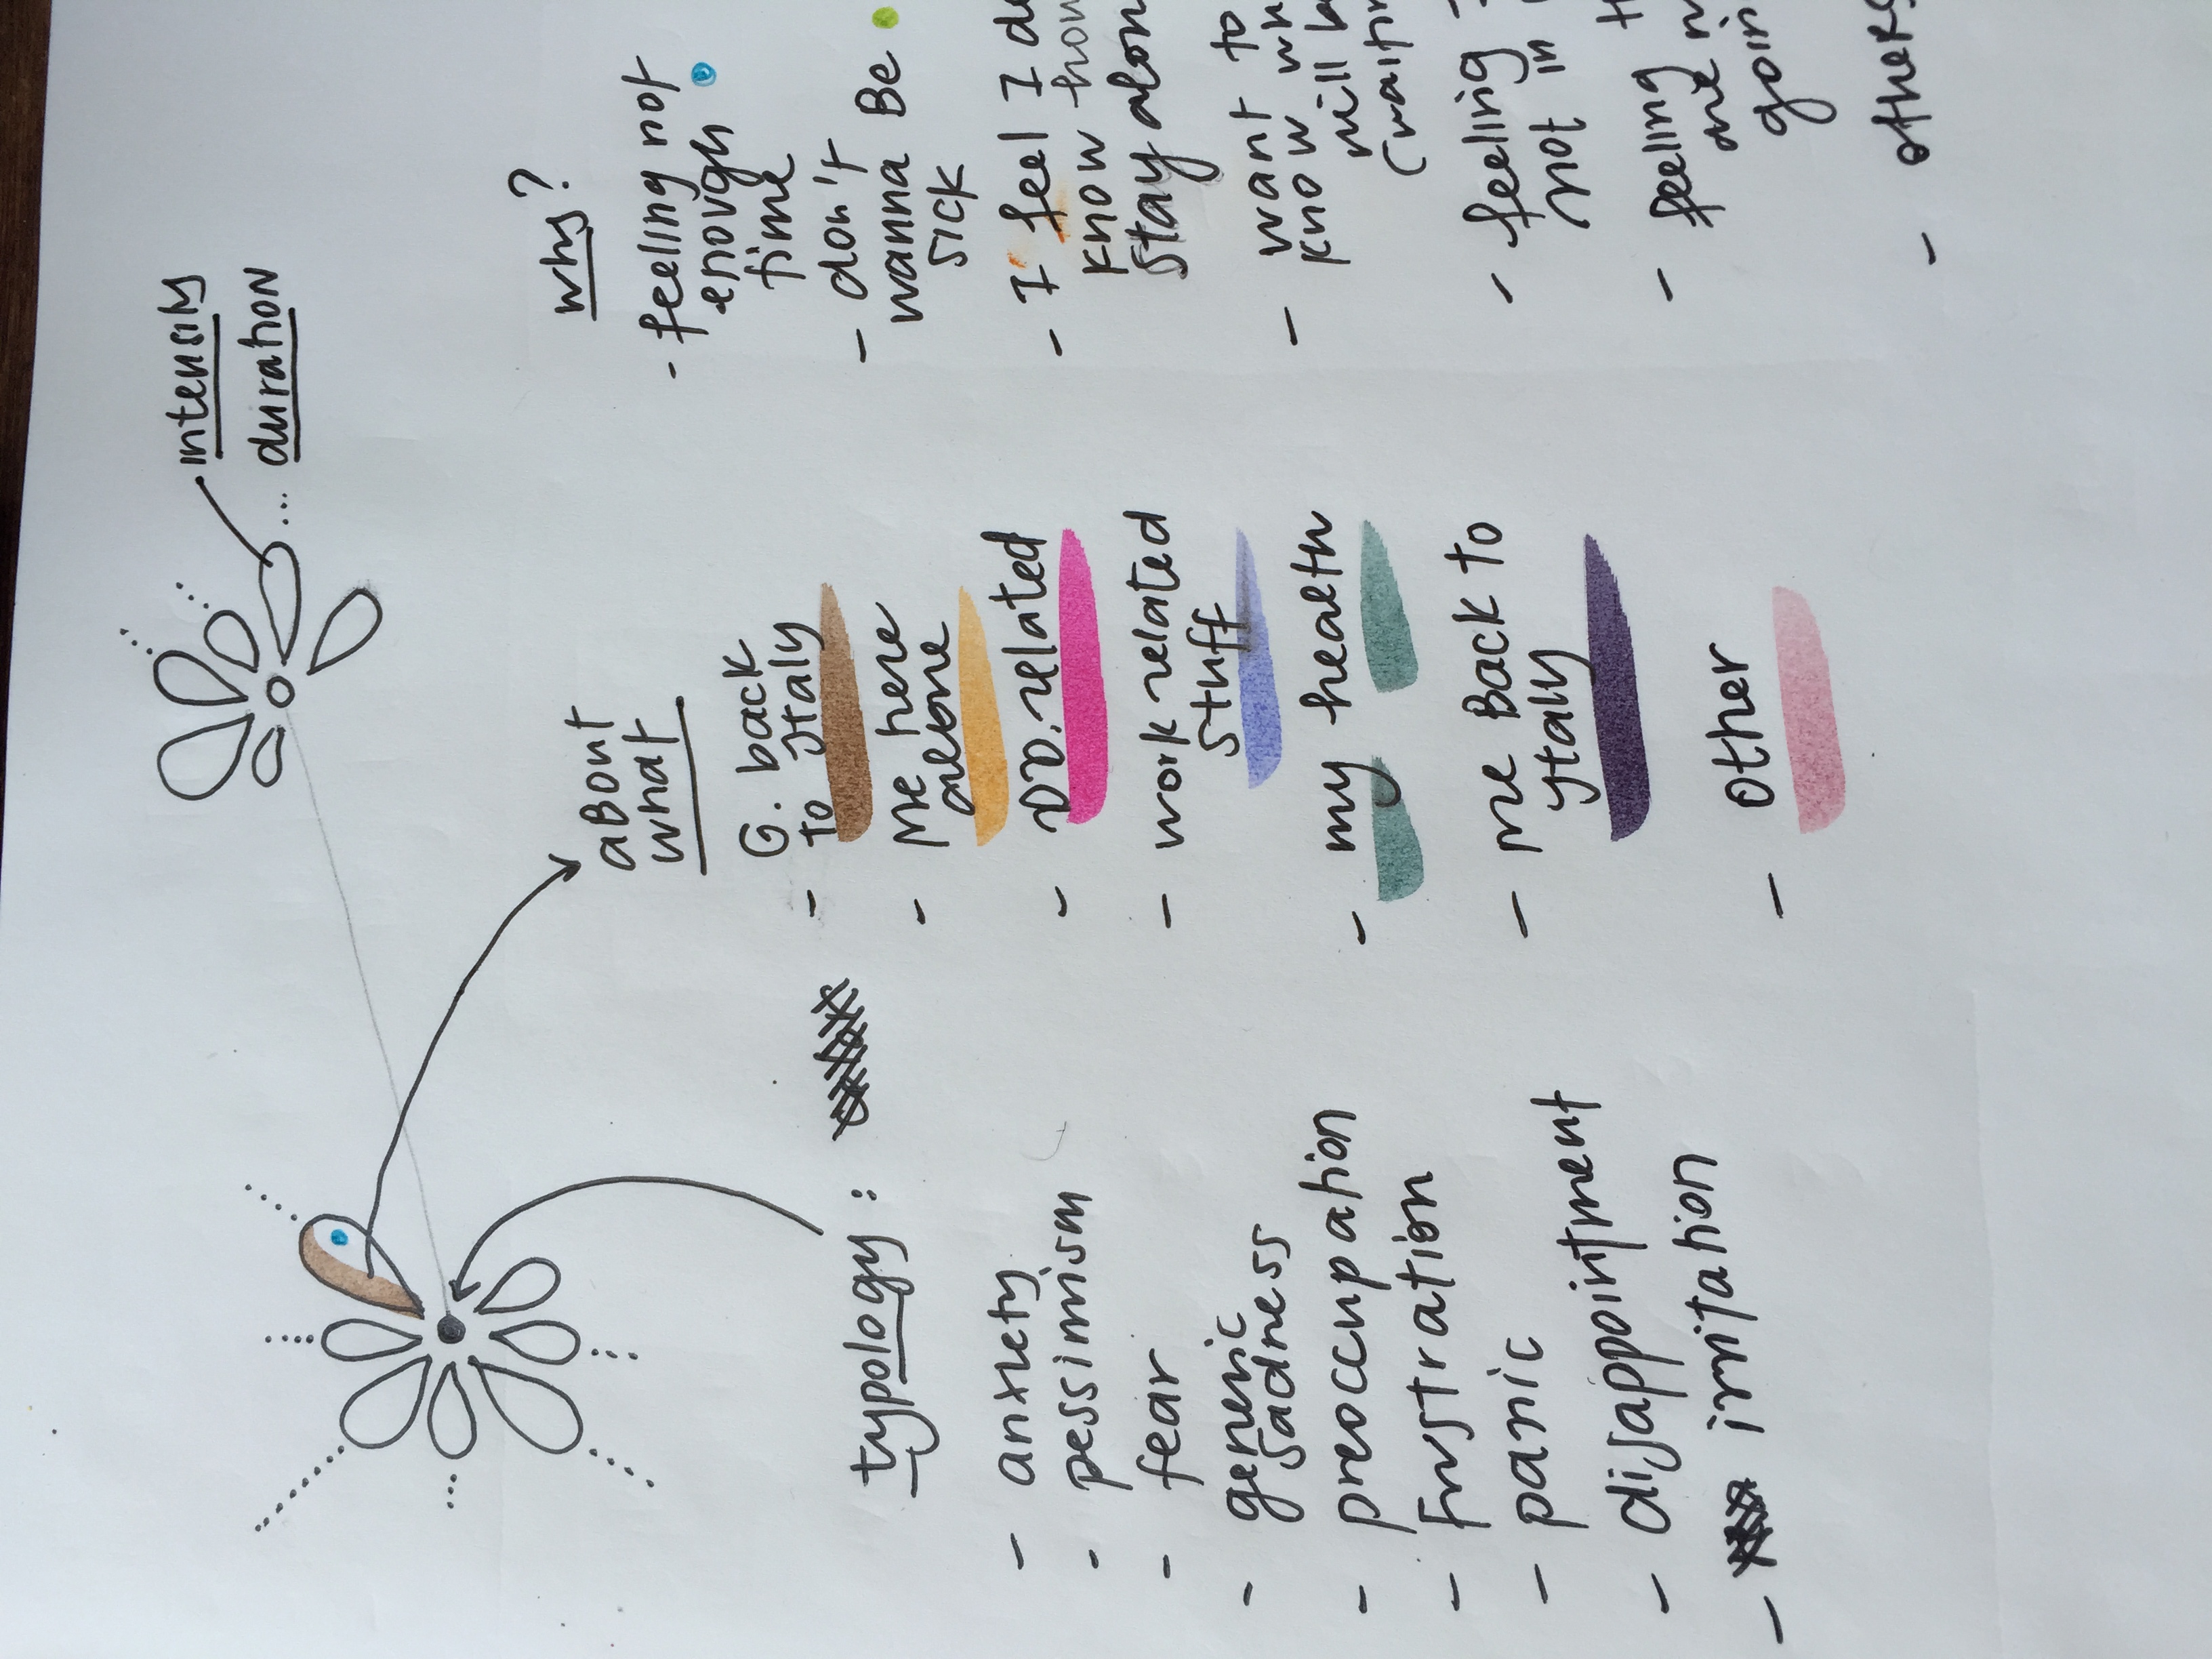 intensity
duration
typology:
- anxiety
- pessimism
- fear
- generic
sadness
- preoccupation
- frustration
- panic
- disappointment
- irritation
about
what
- G. back
to Italy
- me here
alone
- DD. related
- work related
stuff
- my health
- me Back to
ytaly
- other
why?
- feeling not
enough
time
- don't
wanna Be
sick
- I feel I
know how
stay alon
- want to
know
will
- feeling
not in
- feeling
- others